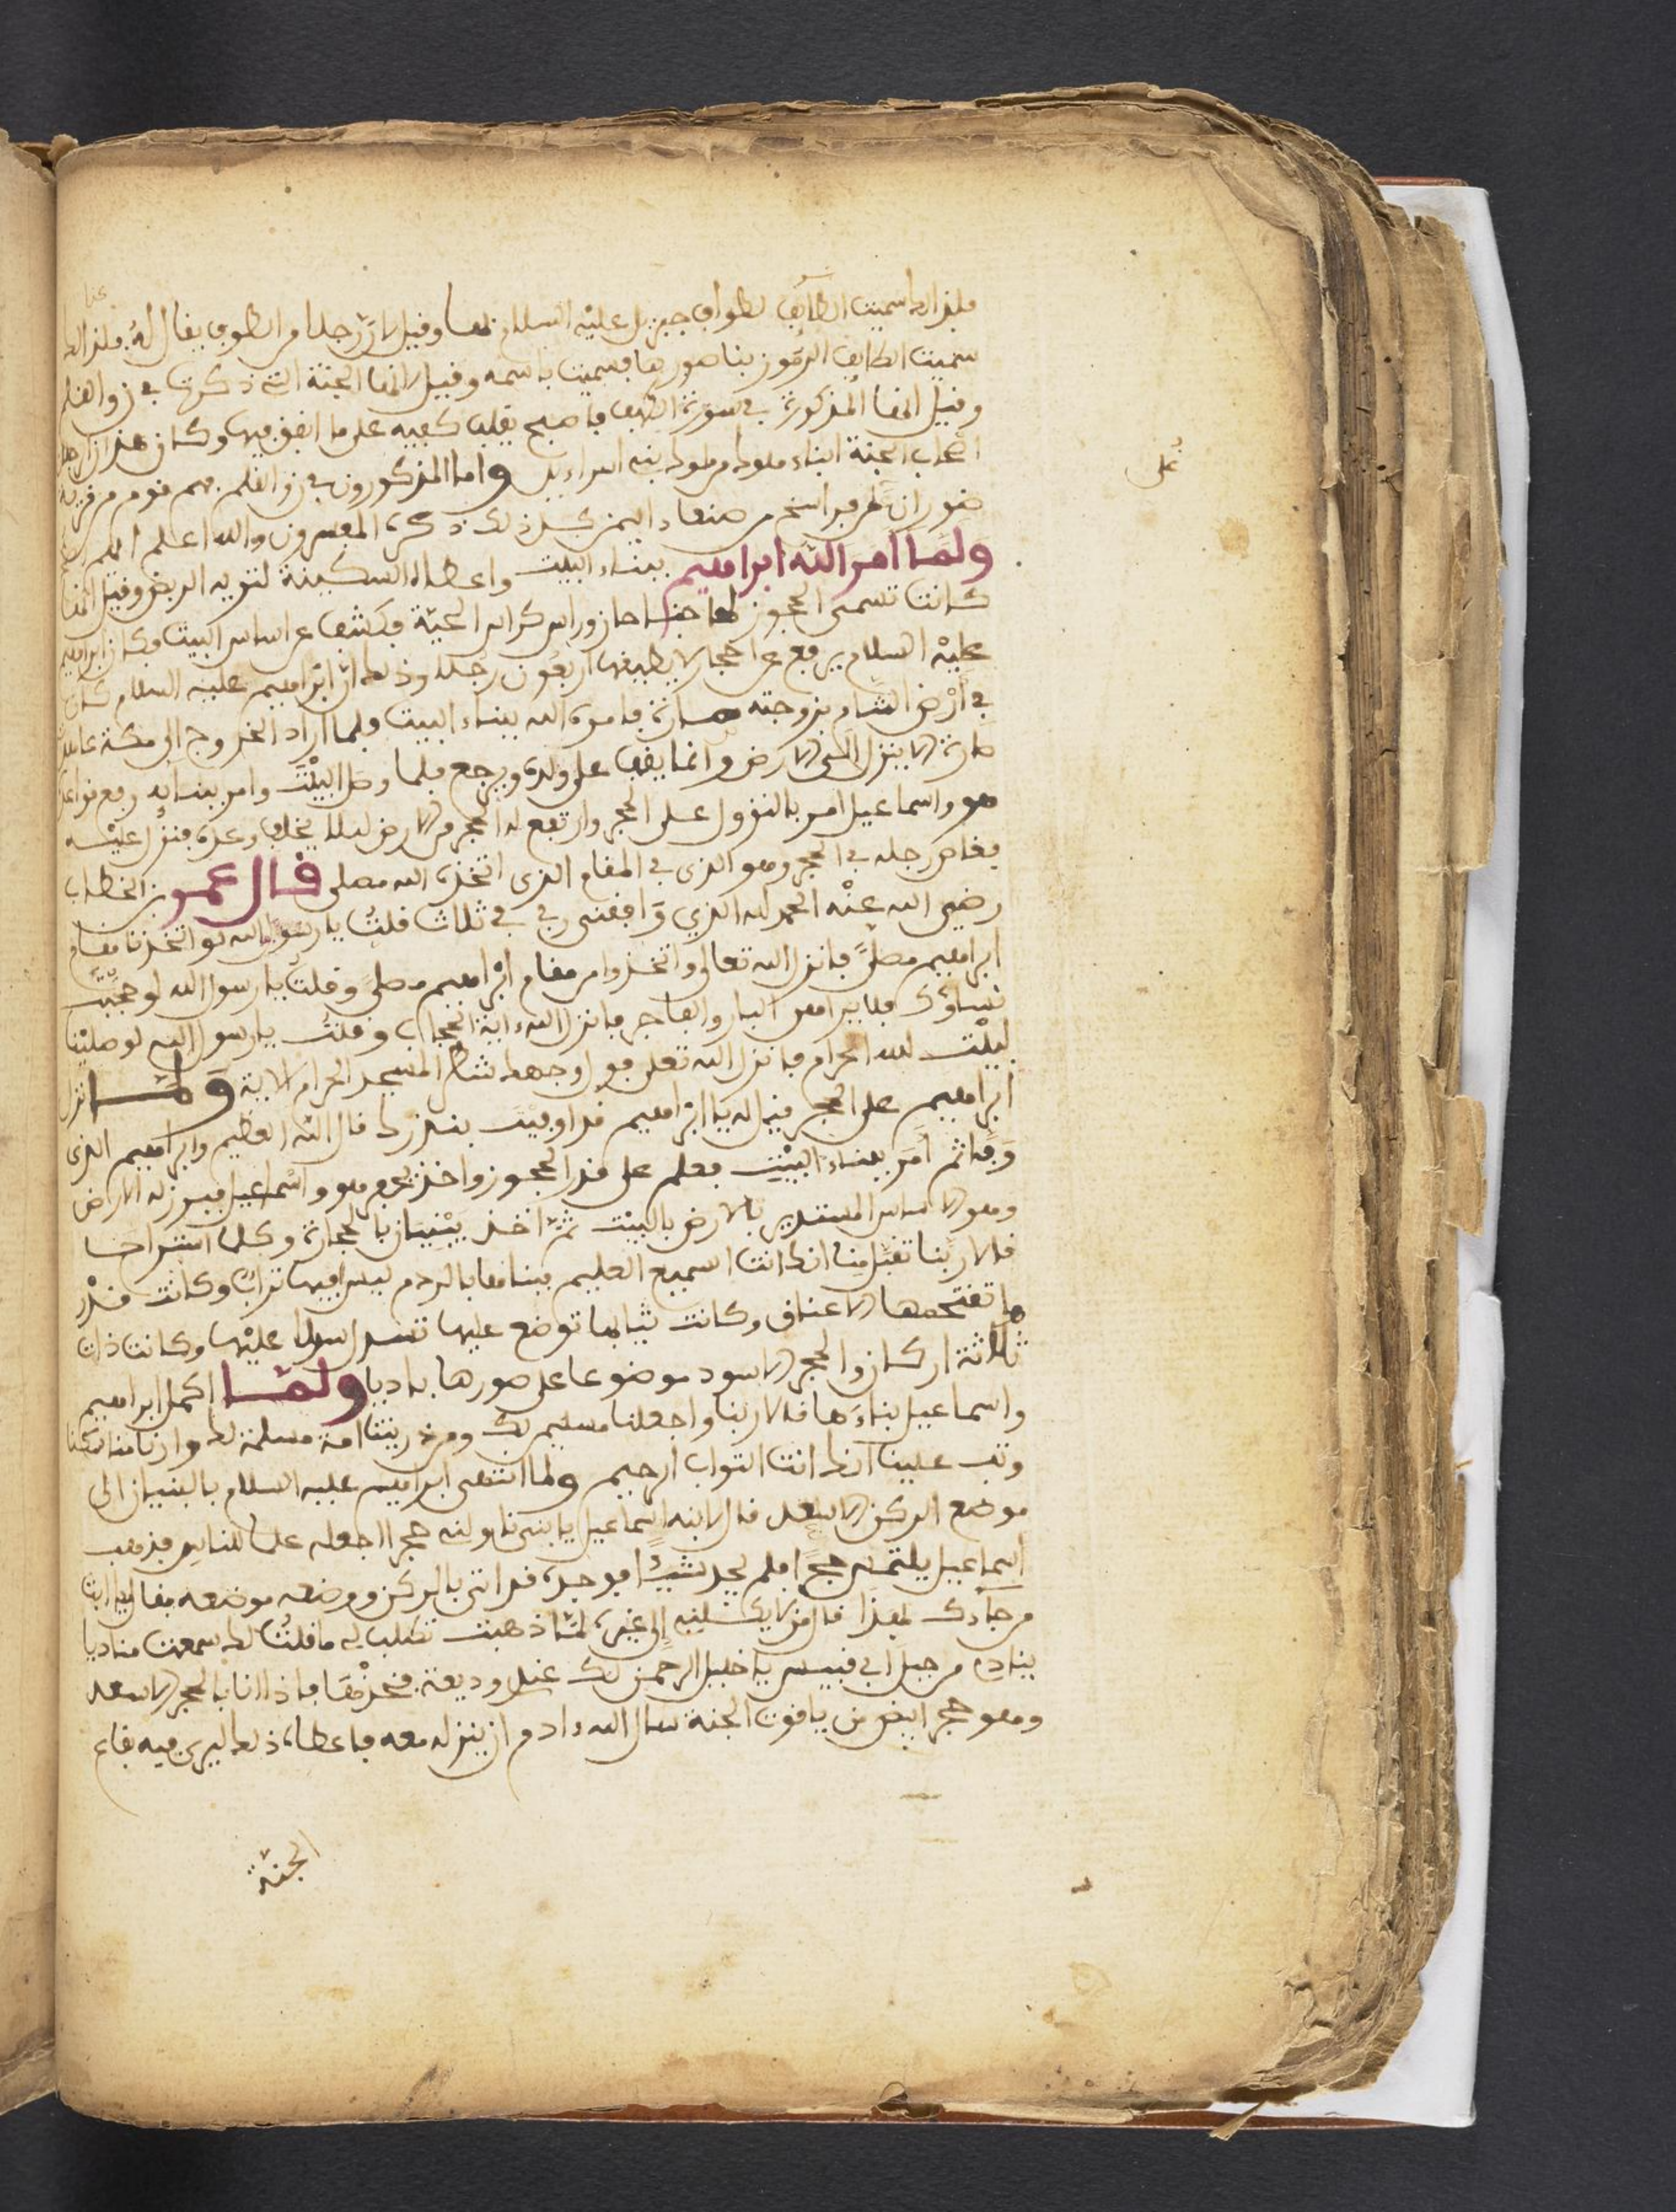 فلذالك سميت الطائف لطواف جبريل عليه السلام بها وقيل لان رجلا من الطوف يقال له فلذالك
سميت الطايف الدمون بنا صورها فسميت باسمه وقيل انها الجنة التي ذكرت في ن والقلم
وقيل انها المذكورة في سورة الكهف فاصبح يقلب كفيه على ما انفق فيها وكان هذان الرجلان
اصحاب الجنة ابناء ملوك من ملوك بني اسراءيل واما المذكورون في ن والقلم فهم قوم من قرية
ضوران على فراسخ من صنعاء اليمن كل ذلك ذكره المفسرون والله اعلم
ولما امر الله ابراهيم ببناء البيت واعطاه السكينة لتريه الربض وقيل انها
كانت تسمى الحجوز لها جناحان وراس كراس الحية فكشفت عن اساس البيت وكان ابراهيم
عليه السلام يرفع عن احجار لا يطيقها اربعون رجلا وذلك ان ابراهيم عليه السلام كان
في ارض الشام بزوجته سارة فامره الله ببناء البيت ولما اراد الخروج الى مكة عاهد
سارة الا ينزل الى الارض وانما يقف على ولده ويرجع فلما وصل البيت وامر ببنائه رفع قواعده
هو واسماعيل امر بالنزول على الحجر وارتفع له الحجر من الارض ليلا يخلف وعده فنزل عليه
فغاص رجله في الحجر وهو الذي في المقام الذي اتخذه الله مصلى قال عمر بن الخطاب
رضي الله عنه الحمد لله الذي وافقني ربي في ثلاث قلت يا رسول الله لو اتخذنا مقام
ابراهيم مصلى فانزل الله تعالى واتخذوا من مقام ابراهيم مصلى وقلت يا رسول الله لو حجبت
نساؤك فلا يراهن البار والفاجر فانزل الله ءاية الحجاب وقلت يا رسول الله لو صلينا
لبيت الله الحرام فانزل الله تعلى فول وجهك شطر المسجد الحرام الاية ولما نزل
ابراهيم على الحجر قيل له يا ابراهيم قد اوفيت بنذرك قال الله العظيم وابراهيم الذي
وفى ثم امر ببناء البيت فعلم على قدر الحجوز واخذ يحفر هو واسماعيل فبرز له الارض
وهو الاساس المستدير بالارض بالبيت ثم اخذ يبنيان بالحجارة وكلما استراحا
قالا ربنا تقبل منا انك انت السميع العليم فبناها بالردم ليس فيها تراب وكانت قدر
ما تقتحمها الاعناق وكانت ثيابها توضع عليها تسدل اسدالا عليها وكانت ذات
ثلاثة اركان والحجر الاسود موضوعا على صورها باديا ولما اكمل ابراهيم
واسماعيل بناءها قالا ربنا واجعلنا مسلمين لك ومن ذريتنا امة مسلمة لك وارنا مناسكنا
وتب علينا انك انت التواب الرحيم ولما انتهى ابراهيم عليه السلام بالبنيان الى
موضع الركن الاسعد قال لابنه اسماعيل يا بني ناولني حجرا اجعله علما للناس فذهب
اسماعيل يلتمس حجرا فلم يجد شيئا فوجده قد اتى بالركن ووضعه موضعه فقال يا ابت
من جاءك بهذا قال من لا يكلني الى غيره لما ذهبت تطلب لي ما قلت لك سمعت مناديا
ينادي من جبل ابي قبيس يا خليل الرحمن لك عندي وديعة فخذها فاذا انا بالحجر الاسعد
وهو حجر ابيض من ياقوت الجنة سال الله ءادم ان ينزله معه فاعطاه ذلك ليرى فيه بقاع
الجنة